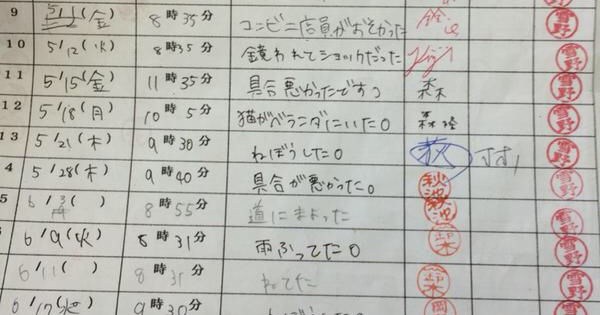 9 5/1 (金) 8時35分 コンビニ店員がおそかった 雪野
10 5/12(火) 8時35分 鏡われてショックだった 雪野
11 5/15(金) 11時35分 具合悪かったです 森 雪野
12 5/18(月) 10時5分 猫がベランダにいた。 森 雪野
13 5/21(木) 9時30分 ねぼうした。 萩 雪野
4 5/28(木) 9時40分 具合が悪かった。 雪野
5 6/3( 8時55分 道にまよった 雪野
6/9(火) 8時31分 雨ふってた。 鈴木 雪野
6/11( ) 8時31分 ねてた 鈴木 雪野
6/17( 9時30分 雪野